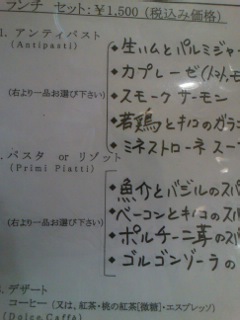 ランチ セット:¥1,500 (税込み価格)
1. アンティパスト
(Antipasti)
(右より一品お選び下さい)
◆生ハムとパルミジャー
◆カプレーゼ(トマト,モ
◆スモークサーモン
◆若鶏とキノコのガラン
◆ミネストローネ スー
. パスタ or リゾット
(Primi Piatti)
(右より一品お選び下さい)
◆魚介とバジルのスパ
◆ベーコンとキノコのスパ
◆ポルチーニ茸のス
◆ゴルゴンゾーラの
. デザート
コーヒー (又は、紅茶・桃の紅茶[微糖]・エスプレッソ)
(Dolce Caffè)